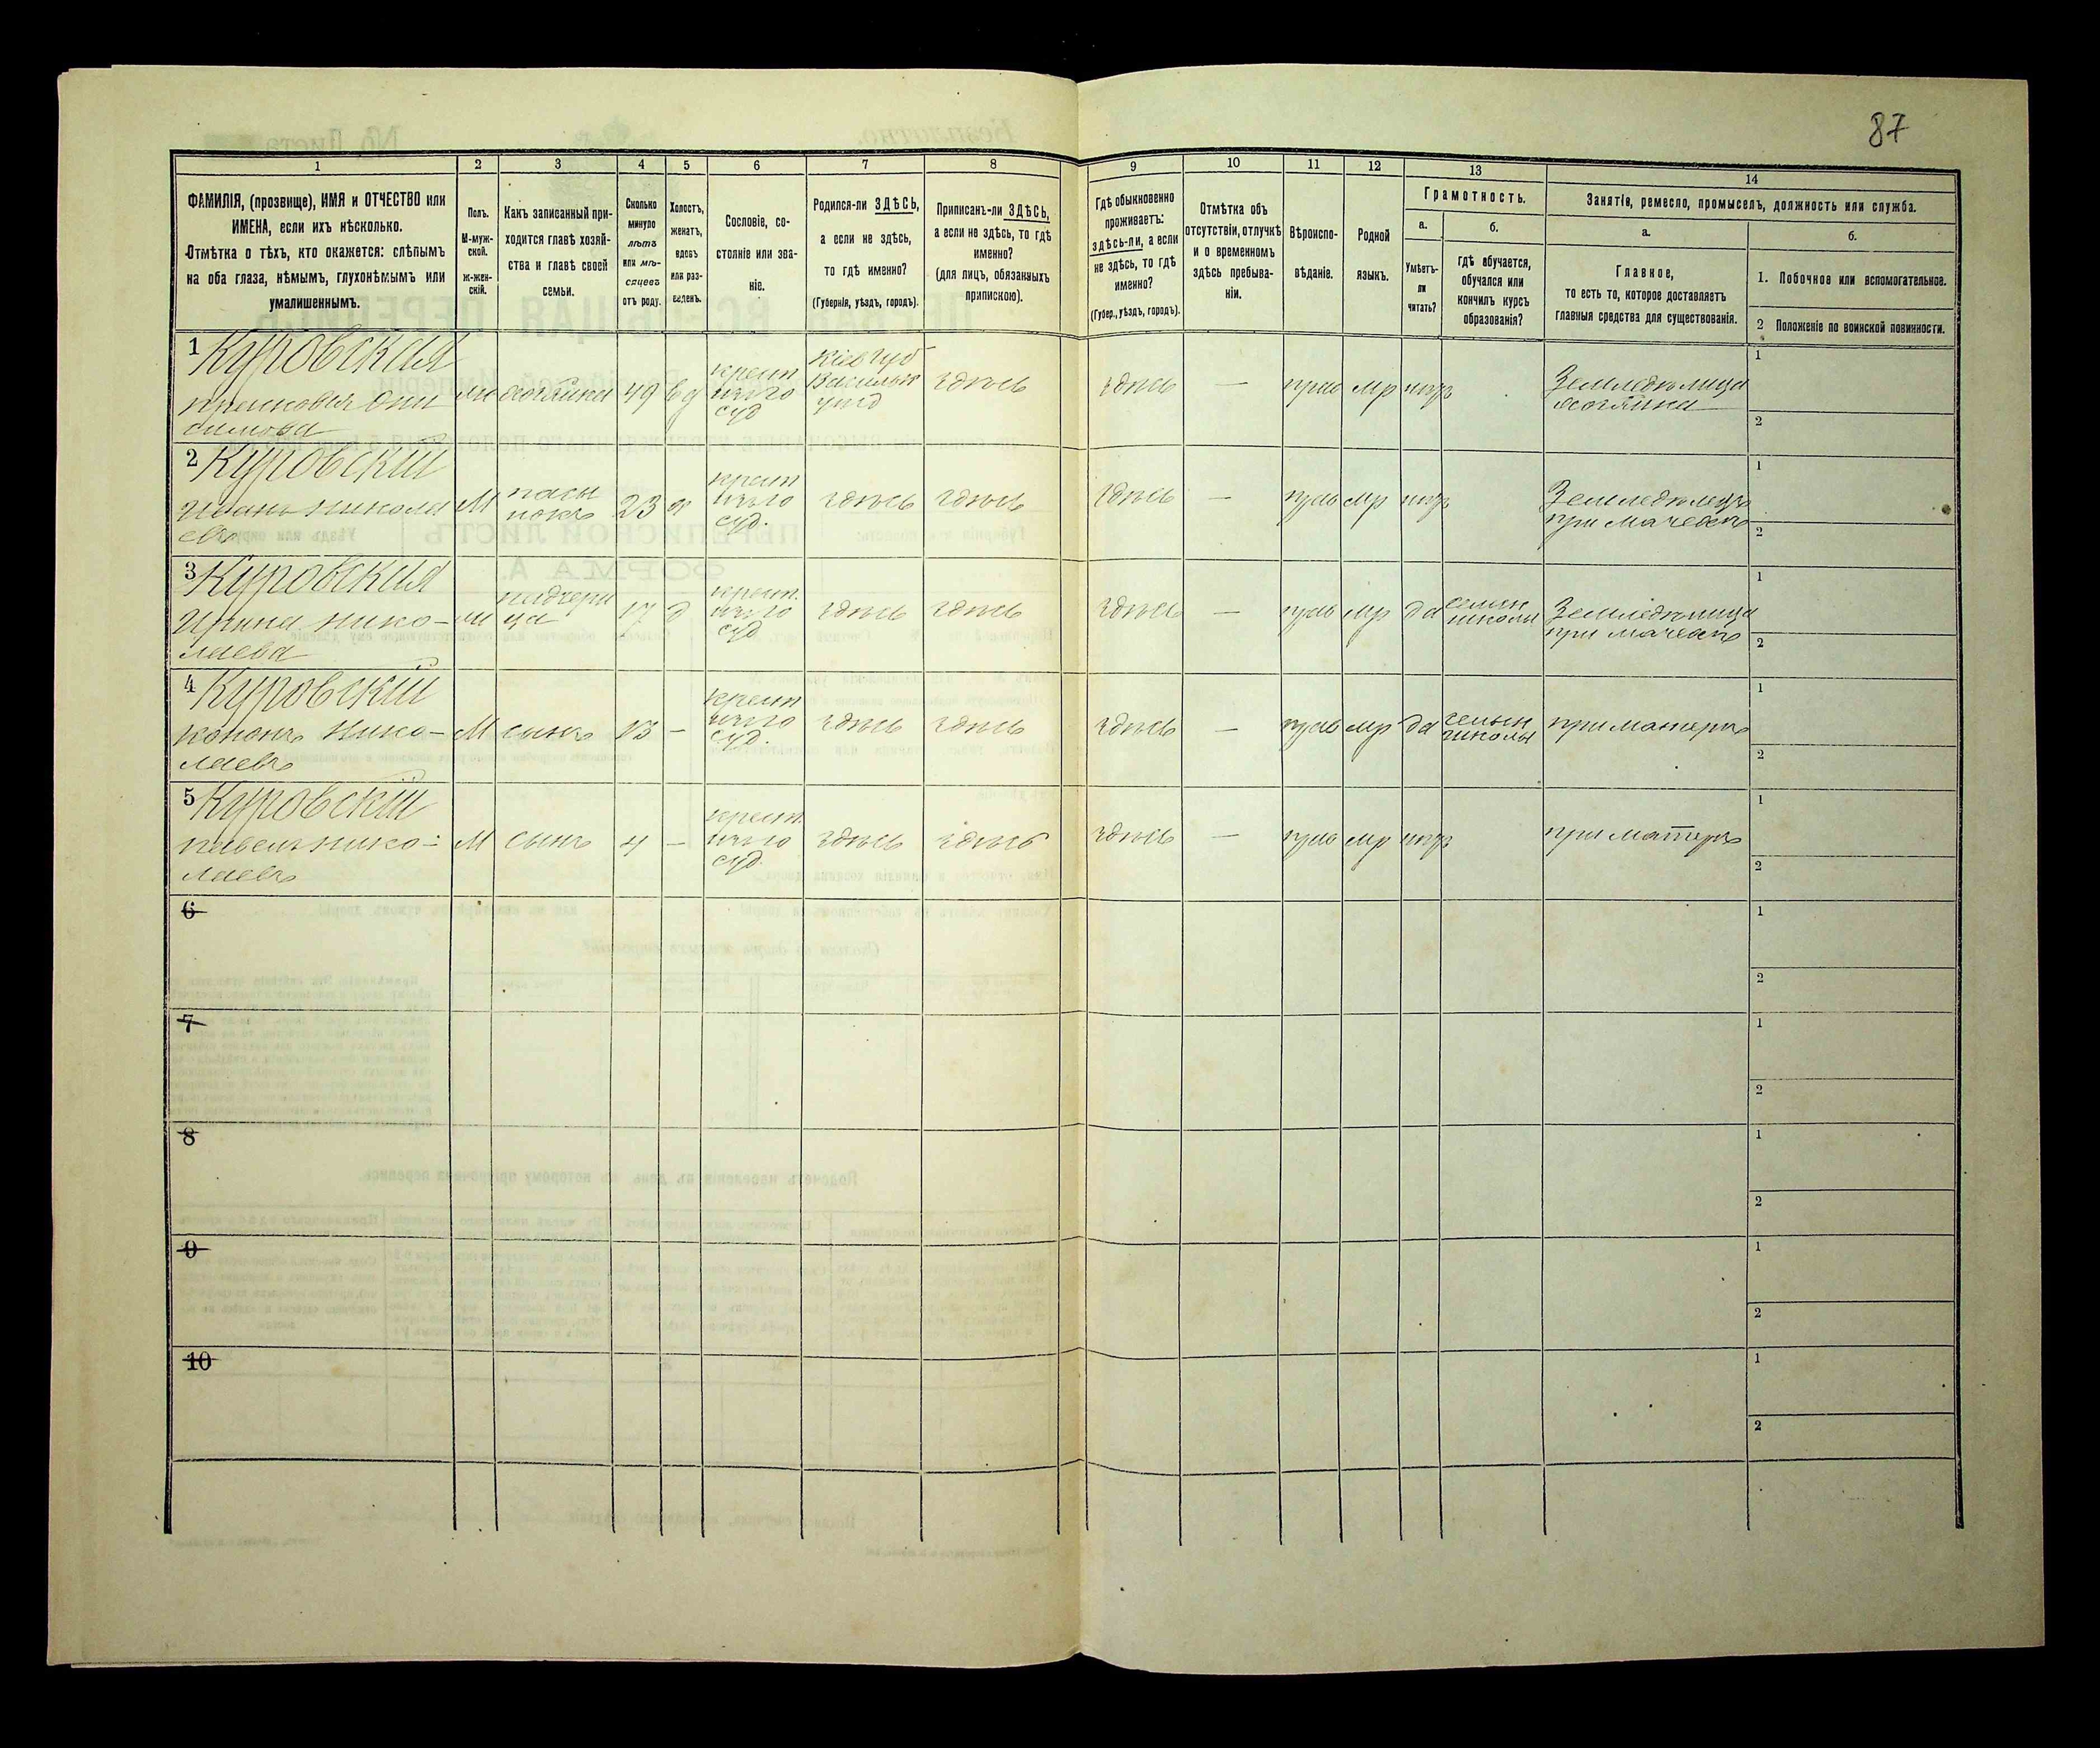 87
1 2 3 4 5 6 7 8 9 10 11 12 13 14
ФАМИЛІЯ, (прозвище), ИМЯ и ОТЧЕСТВО или
ИМЕНА, если ихъ нѣсколько.
Отмѣтка о тѣхъ, кто окажется: слѣпымъ
на оба глаза, нѣмымъ, глухонѣмымъ или
умалишеннымъ.
Полъ.
М-муж-
ской.
ж-жен-
скій.
Какъ записанный при-
ходится главѣ хозяй-
ства и главѣ своей
семьи.
Сколько
минуло
лѣтъ
или мѣ-
сяцевъ
отъ роду.
Холостъ,
женатъ,
вдовъ
или раз-
веденъ.
Сословіе, со-
стояніе или зва-
ніе.
Родился-ли ЗДѢСЬ,
а если не здѣсь,
то гдѣ именно?
(Губернія, уѣздъ, городъ).
Приписанъ-ли ЗДѢСЬ,
а если не здѣсь, то гдѣ
именно?
(для лицъ, обязанныхъ
припискою).
Гдѣ обыкновенно
проживаетъ:
здѣсь-ли, а если
не здѣсь, то гдѣ
именно?
(Губер., уѣздъ, городъ).
Отмѣтка объ
отсутствіи, отлучкѣ
и о временномъ
здѣсь пребыва-
ніи.
Вѣроиспо-
вѣданіе.
Родной
языкъ.
Грамотность.
а.
Умѣетъ-
ли
читать?
б.
гдѣ обучается,
обучался или
кончилъ курсъ
образованія?
Занятіе, ремесло, промыселъ, должность или служба.
а.
Главное,
то есть то, которое доставляетъ
главныя средства для существованія.
б.
1. Побочное или вспомогательное.
2 Положеніе по воинской повинности.
1 Куровская
Прасковія Они
симова
хозяйка
49
вд
крест
суд
Кіев губ
Васильк
уѣзд
здѣсь
здѣсь
—
прав
мр
нѣтъ
Земледѣлица
хозяйка
1
2
2 Куровскій
Иванъ Никола
евъ
М
пасы
нокъ
23
х
крест
суд.
здѣсь
здѣсь
здѣсь
—
прав
мр
нѣтъ
Земледѣлецъ
при мачевѣ
1
2
3 Куровская
Ирина Нико-
лаева
падчери
ца
17
д
крест.
суд
здѣсь
здѣсь
здѣсь
—
прав
мр
да
школы
Земледѣлица
при мачевѣ
1
2
4 Куровскій
Кононъ Нико-
лаевъ
М
сынъ
13
—
крест
суд.
здѣсь
здѣсь
здѣсь
—
прав
мр
да
школы
при матерѣ
1
2
5 Куровскій
Павелъ Нико-
лаевъ
М
сынъ
4
—
крест.
суд.
здѣсь
здѣсь
здѣсь
—
прав
мр
нѣтъ
при матерѣ
1
2
6
1
2
7
1
2
8
1
2
9
1
2
10
1
2